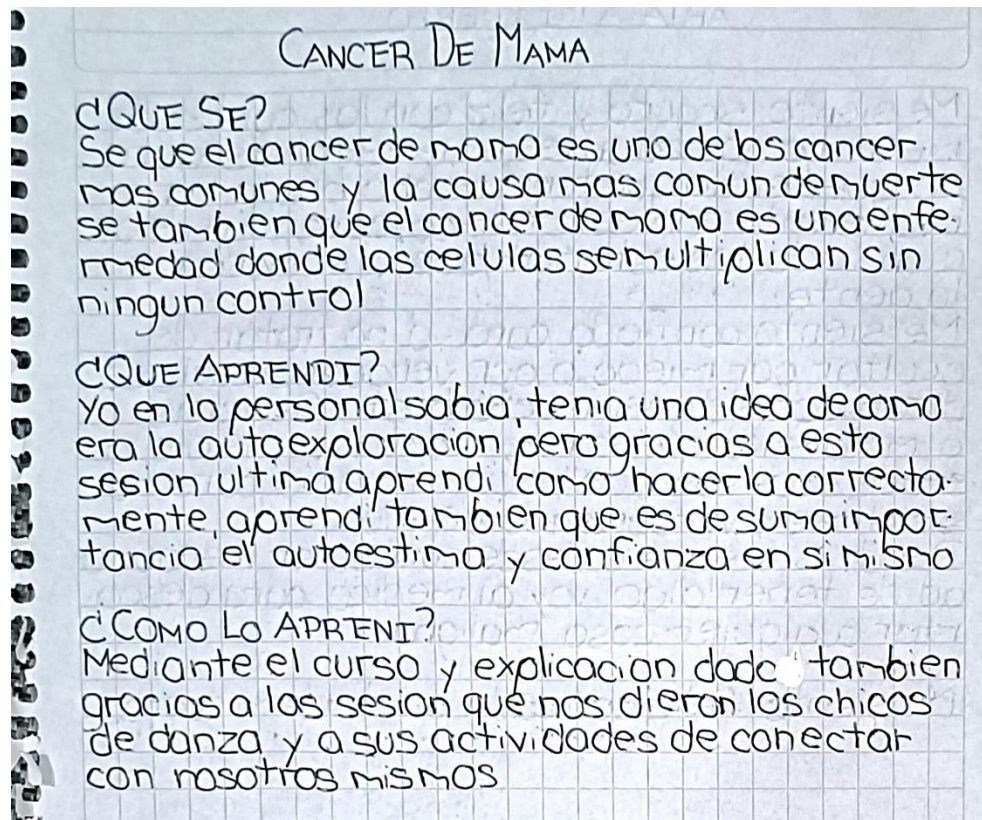 CANCER DE MAMA
¿QUE SE?
Se que el cancer de mama es uno de los cancer
mas comunes y la causa mas comun de muerte
se tambien que el cancer de mama es una enfe-
rmedad donde las celulas se multiplican sin
ningun control
¿QUE APRENDI?
Yo en lo personal sabia, tenia una idea de como
era la autoexploracion pero gracias a esta
sesion ultima aprendi como hacerla correcta-
mente, aprendi tambien que es de suma impor-
tancia el autoestima y confianza en si mismo
¿COMO LO APRENI?
Mediante el curso y explicacion dada tambien
gracias a las sesion que nos dieron los chicos
de danza y a sus actividades de conectar
con nosotros mismos